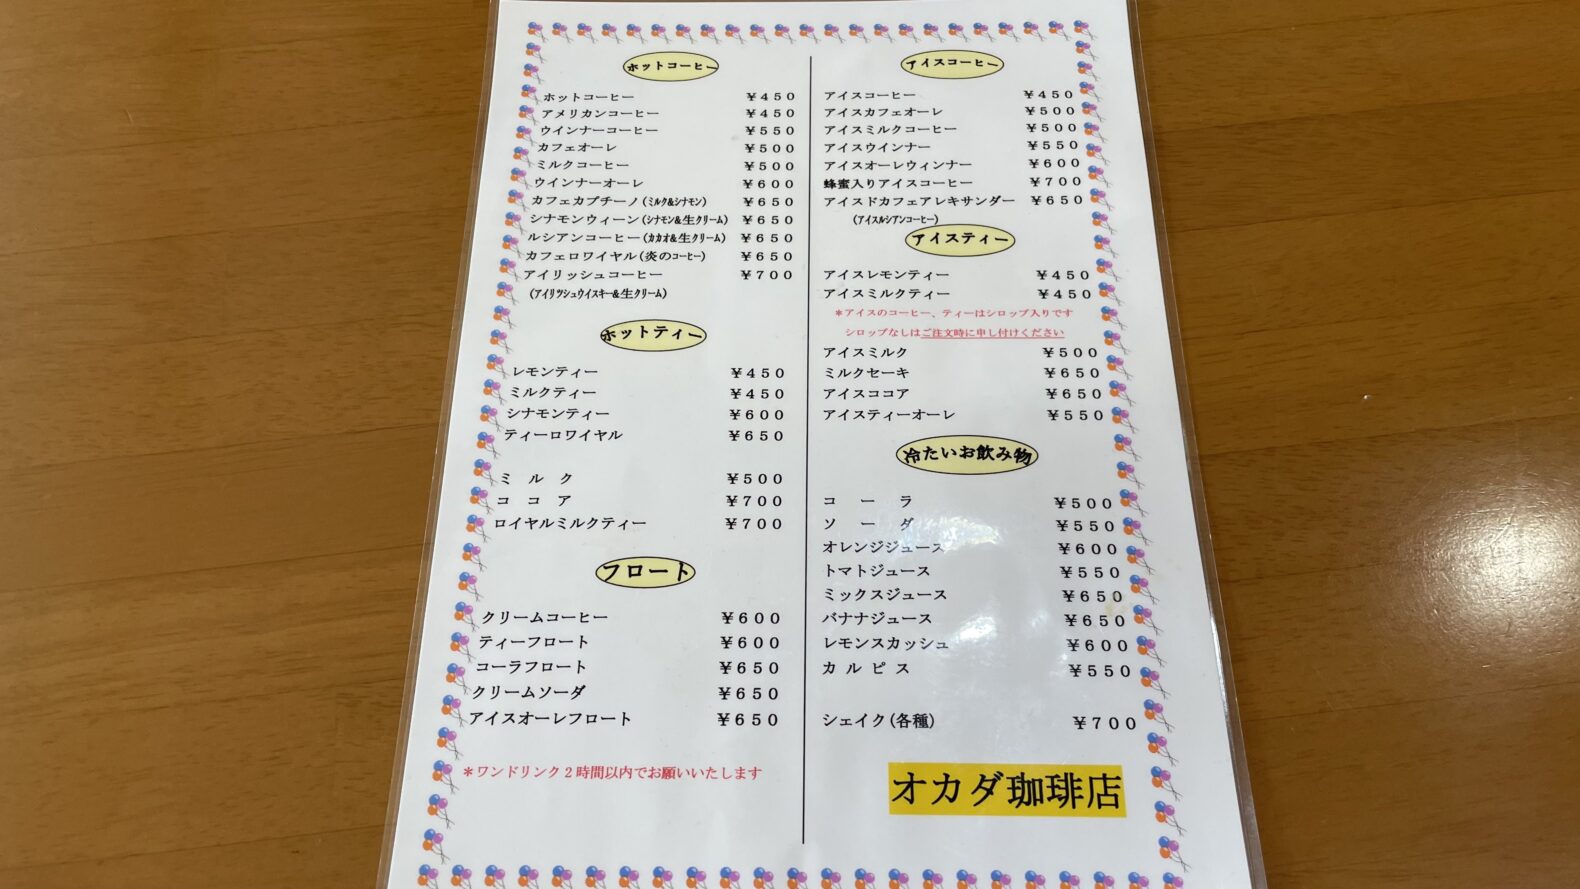 ホットコーヒー
ホットコーヒー ￥４５０
アメリカンコーヒー ￥４５０
ウインナーコーヒー ￥５５０
カフェオーレ ￥５００
ミルクコーヒー ￥５００
ウインナーオーレ ￥６００
カフェカプチーノ(ﾐﾙｸ&ｼﾅﾓﾝ) ￥６５０
シナモンウィーン(ｼﾅﾓﾝ&生ｸﾘｰﾑ) ￥６５０
ルシアンコーヒー(ｶｶｵ&生ｸﾘｰﾑ) ￥６５０
カフェロワイヤル(炎のｺｰﾋｰ) ￥６５０
アイリッシュコーヒー ￥７００
(ｱｲﾘﾂｼｭｳｲｽｷｰ&生ｸﾘｰﾑ)
ホットティー
レモンティー ￥４５０
ミルクティー ￥４５０
シナモンティー ￥６００
ティーロワイヤル ￥６５０
ミ ル ク ￥５００
コ コ ア ￥７００
ロイヤルミルクティー ￥７００
フロート
クリームコーヒー ￥６００
ティーフロート ￥６００
コーラフロート ￥６５０
クリームソーダ ￥６５０
アイスオーレフロート ￥６５０
＊ワンドリンク２時間以内でお願いいたします
アイスコーヒー
アイスコーヒー ￥４５０
アイスカフェオーレ ￥５００
アイスミルクコーヒー ￥５００
アイスウインナー ￥５５０
アイスオーレウィンナー ￥６００
蜂蜜入りアイスコーヒー ￥７００
アイスドカフェアレキサンダー ￥６５０
(ｱｲｽﾙｼｱﾝｺｰﾋｰ)
アイスティー
アイスレモンティー ￥４５０
アイスミルクティー ￥４５０
＊アイスのコーヒー、ティーはシロップ入りです
シロップなしはご注文時に申し付けください
アイスミルク ￥５００
ミルクセーキ ￥６５０
アイスココア ￥６５０
アイスティーオーレ ￥５５０
冷たいお飲み物
コ ー ラ ￥５００
ソ ー ダ ￥５５０
オレンジジュース ￥６００
トマトジュース ￥５５０
ミックスジュース ￥６５０
バナナジュース ￥６５０
レモンスカッシュ ￥６００
カ ル ピ ス ￥５５０
シェイク(各種) ￥７００
オカダ珈琲店